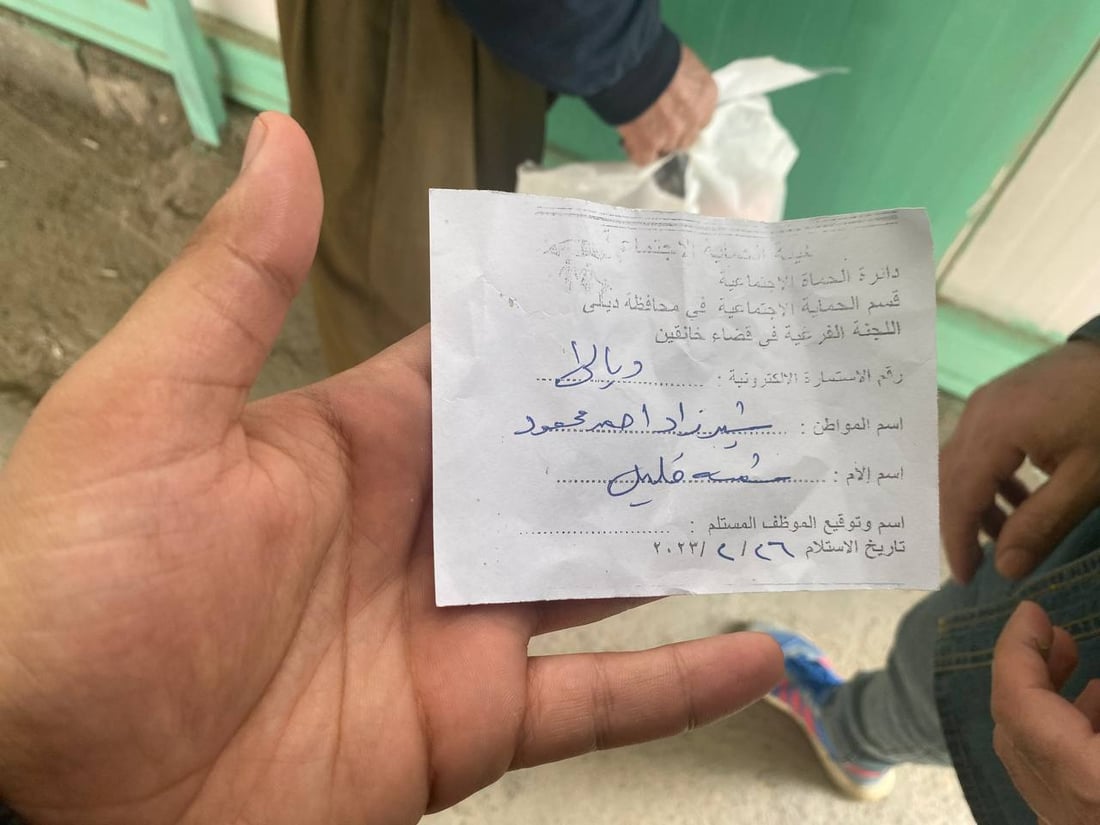 هيئة الحماية الاجتماعية
دائرة الحماة الإجتماعية
قسم الحماية الاجتماعية في محافظة ديالى
اللجنة الفرعية في قضاء خانقين
رقم الاستمارة الالكترونية : ديالى
اسم المواطن : شيرزاد احمد محمود
اسم الأم : خليل
اسم وتوقيع الموظف المستلم :
تاريخ الاستلام ٢٦/٢/٢٠٢٣